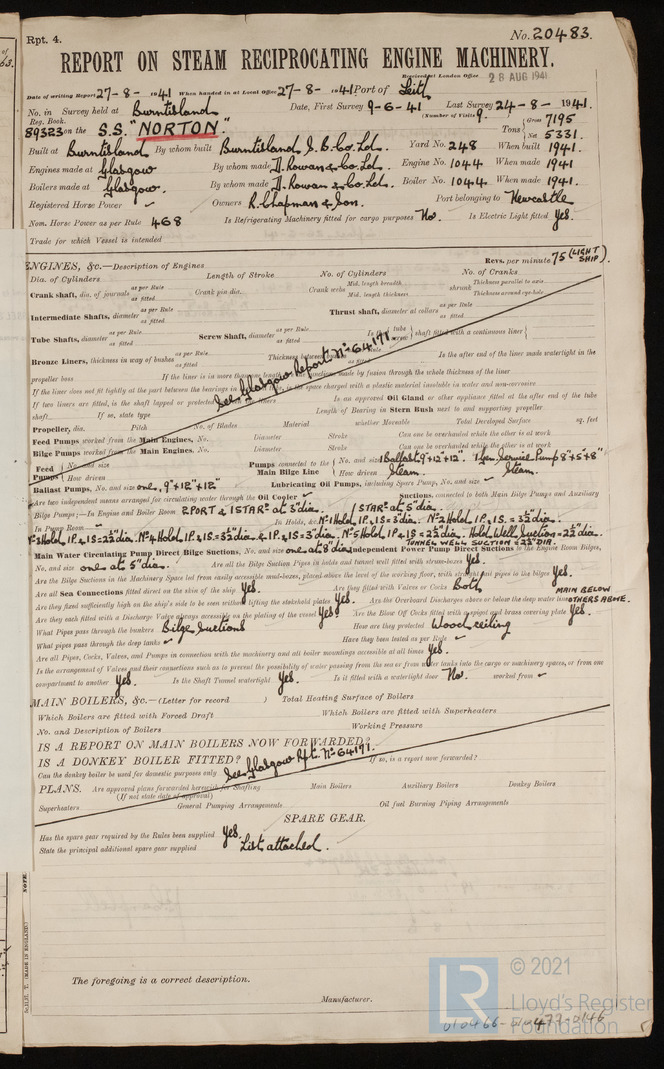 Rpt. 4.
No. 20483.
REPORT ON STEAM RECIPROCATING ENGINE MACHINERY.
Received at London Office 28 AUG 1941
Date of writing Report 27-8-1941 When handed in at Local Office 27-8-1941 Port of Leith
No. in Survey held at Burntisland Date, First Survey 9-6-41 Last Survey 24-8-1941.
Reg. Book. (Number of Visits 9.
89323 on the S.S. "NORTON." Tons Gross 7195 Net 5331.
Built at Burntisland By whom built Burntisland S.B. Co. Ld. Yard No. 248 When built 1941.
Engines made at Glasgow By whom made D. Rowan & Co. Ld. Engine No. 1044 When made 1941
Boilers made at Glasgow. By whom made D. Rowan & Co. Ld. Boiler No. 1044 When made 1941.
Registered Horse Power Owners R. Chapman & Son. Port belonging to Newcastle
Nom. Horse Power as per Rule 468 Is Refrigerating Machinery fitted for cargo purposes No. Is Electric Light fitted Yes.
Trade for which Vessel is intended
ENGINES, &c.—Description of Engines Revs. per minute 75 (LIGHT SHIP).
Dia. of Cylinders Length of Stroke No. of Cylinders No. of Cranks
Crank shaft, dia. of journals as per Rule as fitted Crank pin dia. Crank webs Mid. length breadth Mid. length thickness shrunk Thickness parallel to axis Thickness around eye-hole
Intermediate Shafts, diameter as per Rule as fitted Thrust shaft, diameter at collars as per Rule as fitted
Tube Shafts, diameter as per Rule as fitted Screw Shaft, diameter as per Rule as fitted Is the tube screw shaft fitted with a continuous liner
Bronze Liners, thickness in way of bushes as per Rule as fitted Thickness between bushes as per Rule as fitted Is the after end of the liner made watertight in the
propeller boss If the liner is in more than one length are the junctions made by fusion through the whole thickness of the liner
If the liner does not fit tightly at the part between the bearings in the is the space charged with a plastic material insoluble in water and non-corrosive
If two liners are fitted, is the shaft lapped or protected between the liners Is an approved Oil Gland or other appliance fitted at the after end of the tube
shaft If so, state type Length of Bearing in Stern Bush next to and supporting propeller
See Glasgow Report No 64171.
Propeller, dia. Pitch No. of Blades Material whether Moveable Total Developed Surface sq. feet
Feed Pumps worked from the Main Engines, No. Diameter Stroke Can one be overhauled while the other is at work
Bilge Pumps worked from the Main Engines, No. Diameter Stroke Can one be overhauled while the other is at work
Feed Pumps No. and size How driven Pumps connected to the Main Bilge Line No. and size 1 Ballast 9"+12"+12". 1 Gen. Service Pump 8"+5"+8"
How driven Steam. Steam.
Ballast Pumps, No. and size one, 9"+12"+12" Lubricating Oil Pumps, including Spare Pump, No. and size
Are two independent means arranged for circulating water through the Oil Cooler Suctions, connected to both Main Bilge Pumps and Auxiliary
Bilge Pumps;—In Engine and Boiler Room 2 PORT & 1 STARd at 3" dia. 1 STARd at 5" dia.
In Pump Room In Holds, &c. No 1 Hold 1P. & 1S. = 3" dia. No 2 Hold 1P. & 1S. = 3½" dia.
No 3 Hold 1P. & 1S = 2½" dia. No 4 Hold 1P. & 1S. = 3½" dia. & 1P. & 1S = 3" dia. No 5 Hold 1P. & 1S = 2½" dia. Hold Well Suction = 2½" dia.
TUNNEL WELL SUCTION = 2½" DIA.
Main Water Circulating Pump Direct Bilge Suctions, No. and size one at 8" dia Independent Power Pump Direct Suctions to the Engine Room Bilges,
No. and size one at 5" dia. Are all the Bilge Suction Pipes in holds and tunnel well fitted with strum-boxes Yes.
Are the Bilge Suctions in the Machinery Space led from easily accessible mud-boxes, placed above the level of the working floor, with straight tail pipes to the bilges Yes.
Are all Sea Connections fitted direct on the skin of the ship Yes. Are they fitted with Valves or Cocks Both
Are they fixed sufficiently high on the ship's side to be seen without lifting the stokehold plates Yes. Are the Overboard Discharges above or below the deep water line MAIN BELOW OTHERS ABOVE.
Are they each fitted with a Discharge Valve always accessible on the plating of the vessel Yes Are the Blow Off Cocks fitted with a spigot and brass covering plate Yes.
What Pipes pass through the bunkers Bilge Suctions How are they protected Wood ceiling
What pipes pass through the deep tanks Have they been tested as per Rule
Are all Pipes, Cocks, Valves, and Pumps in connection with the machinery and all boiler mountings accessible at all times Yes.
Is the arrangement of Valves and their connections such as to prevent the possibility of water passing from the sea or from water tanks into the cargo or machinery spaces, or from one
compartment to another Yes. Is the Shaft Tunnel watertight Yes. Is it fitted with a watertight door No. worked from
MAIN BOILERS, &c.—(Letter for record ) Total Heating Surface of Boilers
Which Boilers are fitted with Forced Draft Which Boilers are fitted with Superheaters
No. and Description of Boilers Working Pressure
IS A REPORT ON MAIN BOILERS NOW FORWARDED?
IS A DONKEY BOILER FITTED? If so, is a report now forwarded?
Can the donkey boiler be used for domestic purposes only
See Glasgow Rpt. No 64171.
PLANS. Are approved plans forwarded herewith for Shafting Main Boilers Auxiliary Boilers Donkey Boilers
(If not state date of approval)
Superheaters General Pumping Arrangements Oil fuel Burning Piping Arrangements
SPARE GEAR.
Has the spare gear required by the Rules been supplied Yes.
State the principal additional spare gear supplied List attached.
The foregoing is a correct description.
Manufacturer.
LR © 2021
Lloyd's Register
Foundation
010466-010477-0146